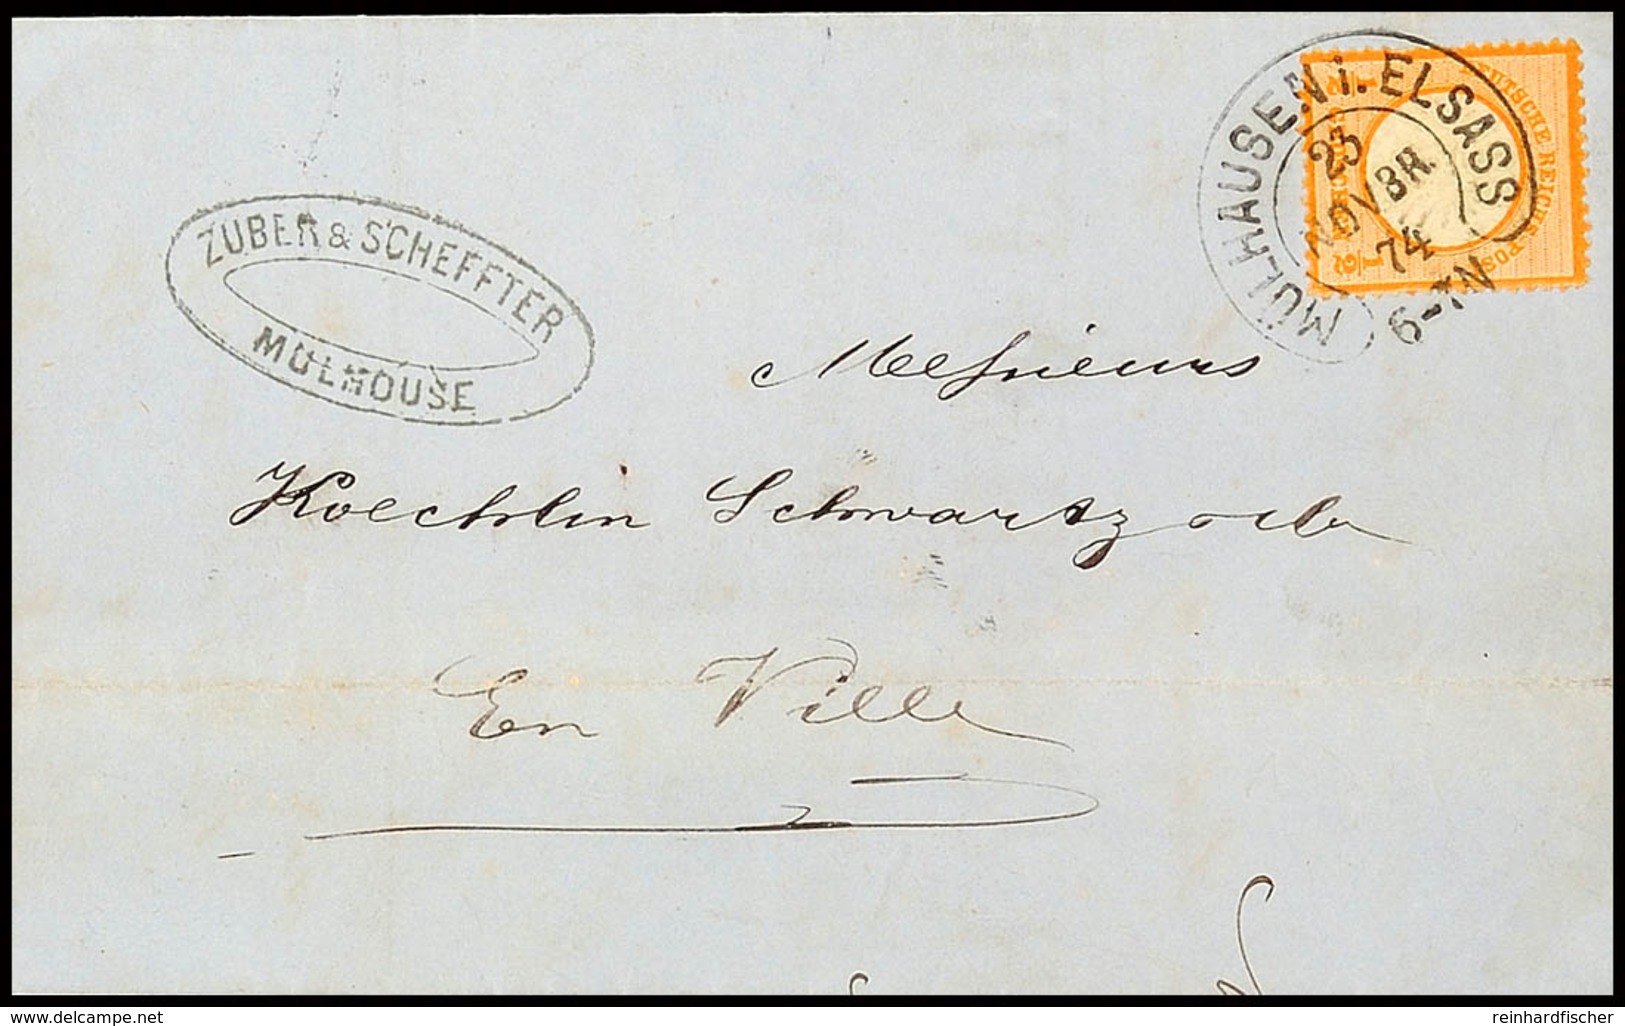 MÜLHAUSEN i. ELSASS
25
NOVBR.
74
6-7N
DEUTSCHE REICHS-POST
1/2
1/2
ZUBER & SCHEFFTER
MULHOUSE
Messieurs
Koechlin Schwartz &
En Ville
www.delcampe.net
reinhardfischer